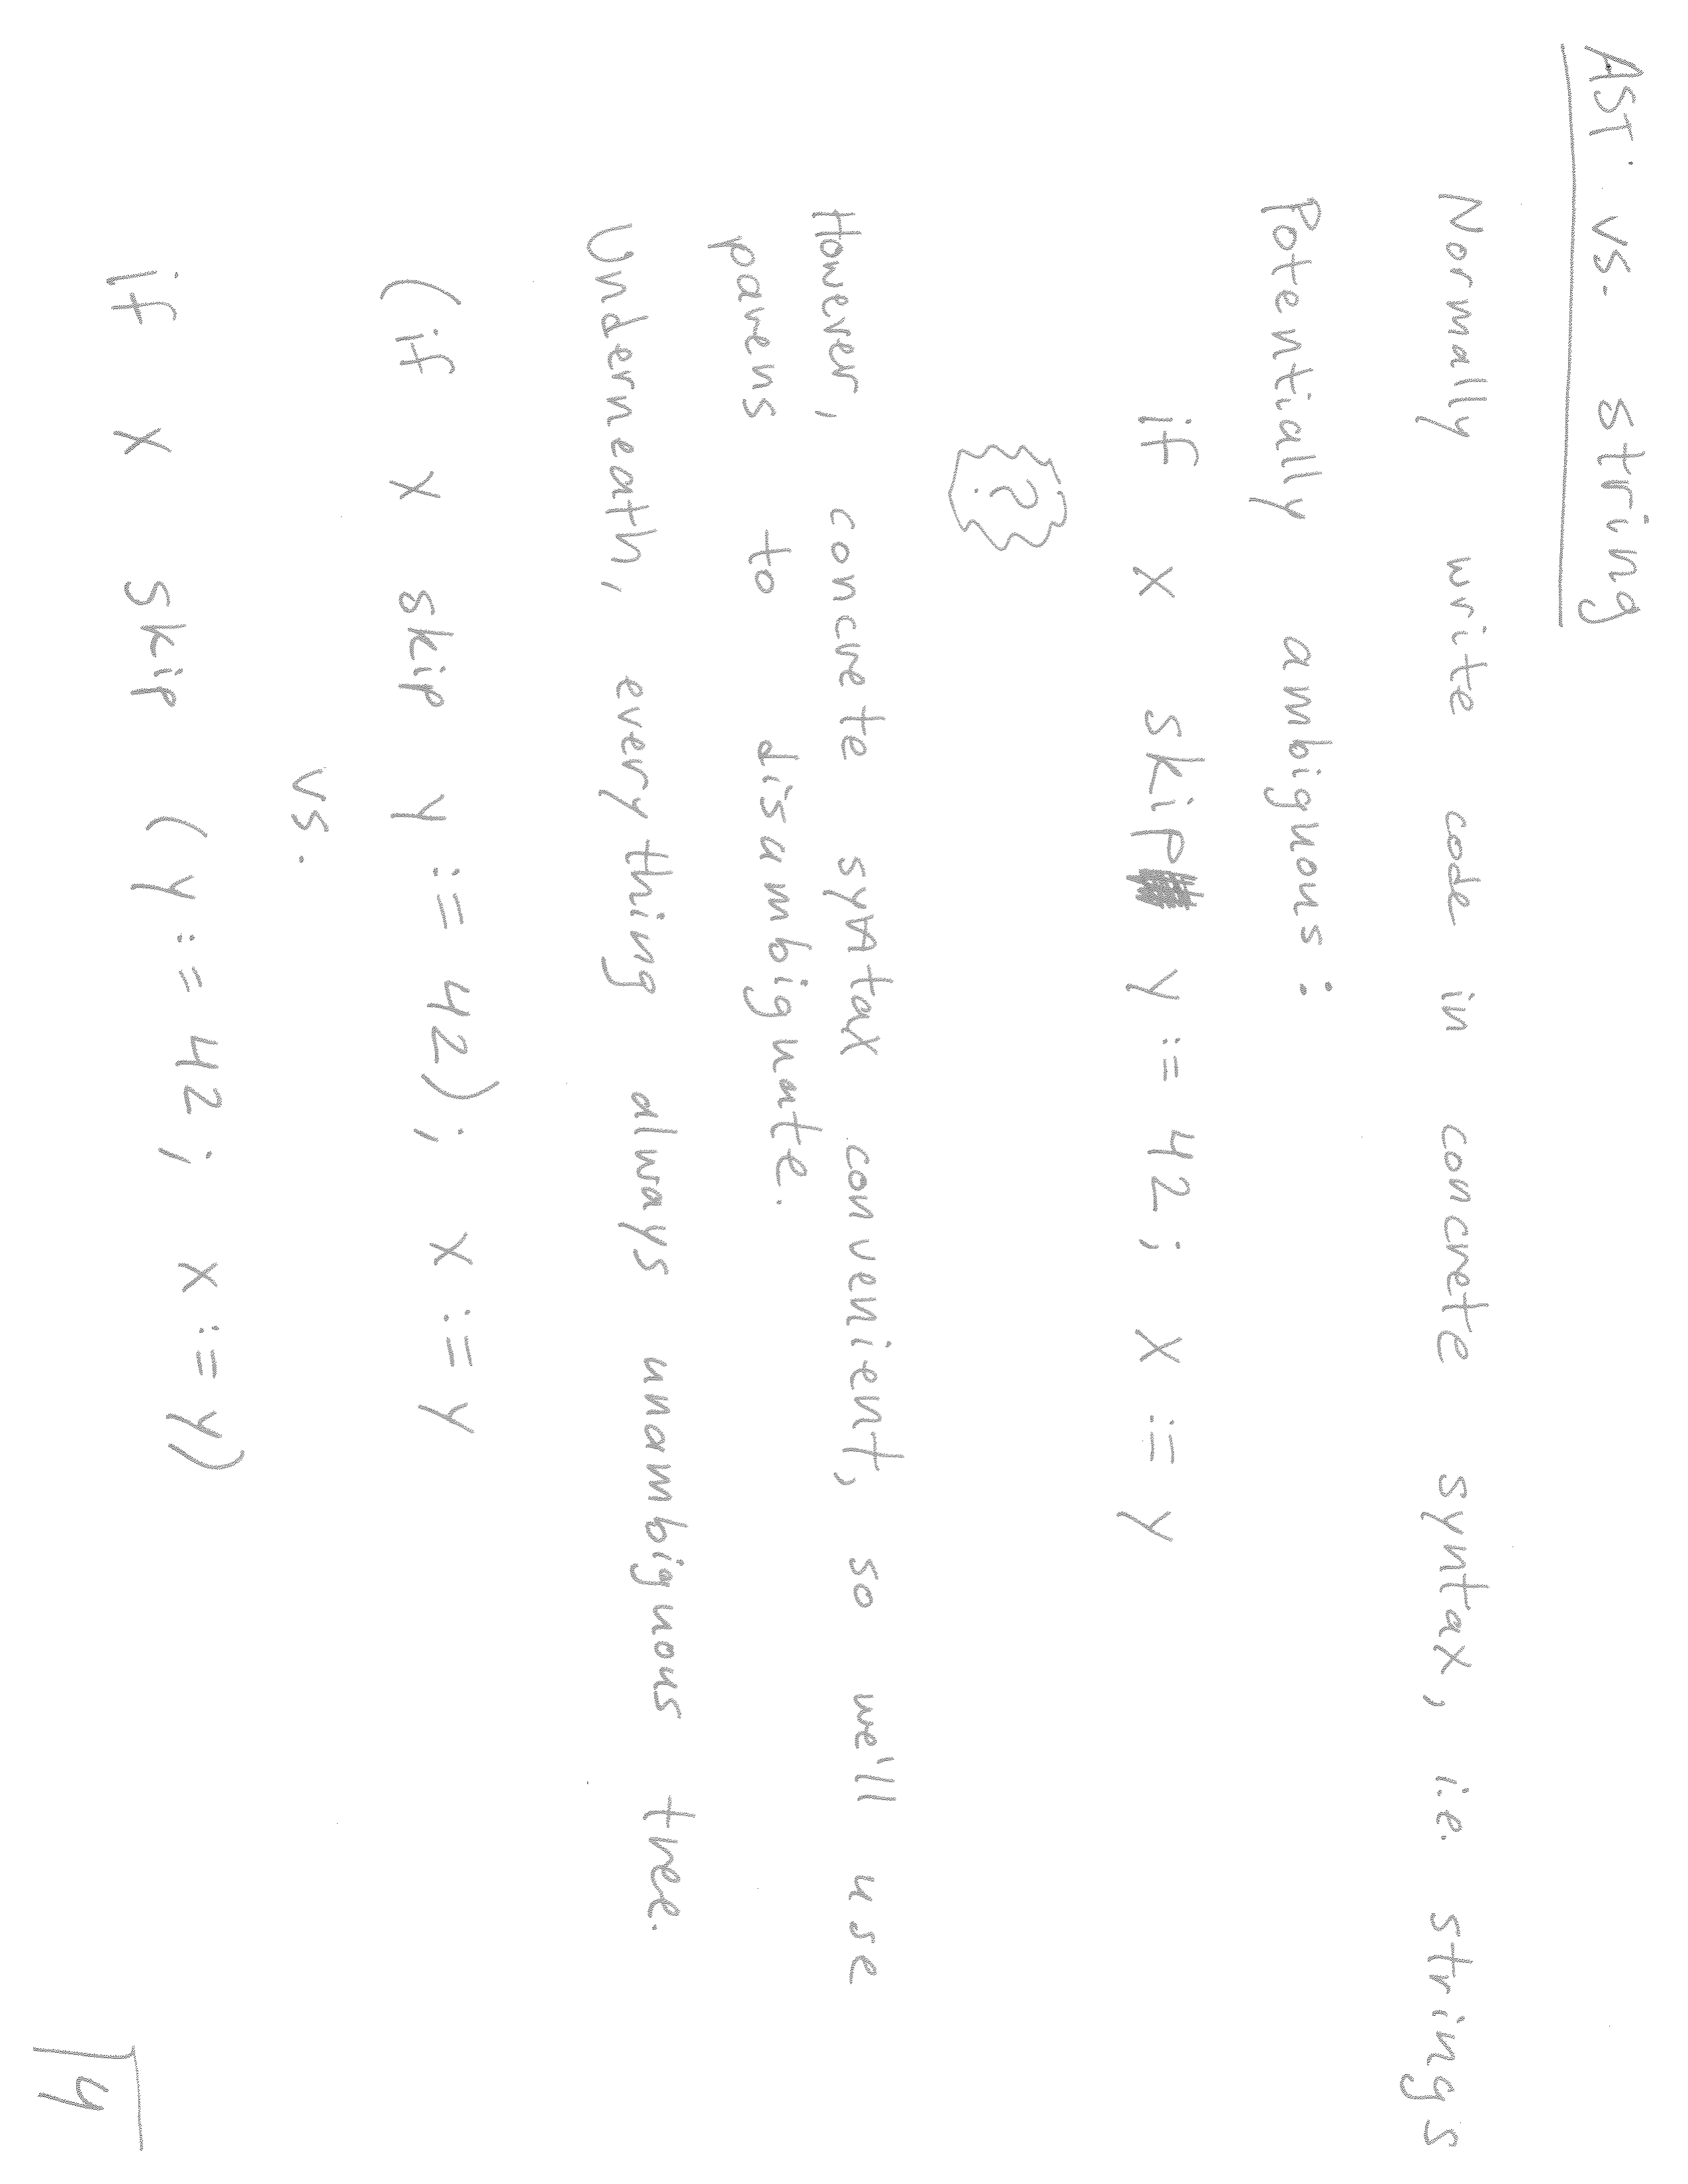 AST vs. string
Normally write code in concrete syntax, i.e. strings
Potentially ambiguous:
if x skip y := 42; x := y
?
However, concrete syntax convenient, so we'll use
parens to disambiguate.
Underneath, everything always unambiguous tree.
(if x skip y := 42); x := y
vs.
if x skip (y := 42; x := y)
4